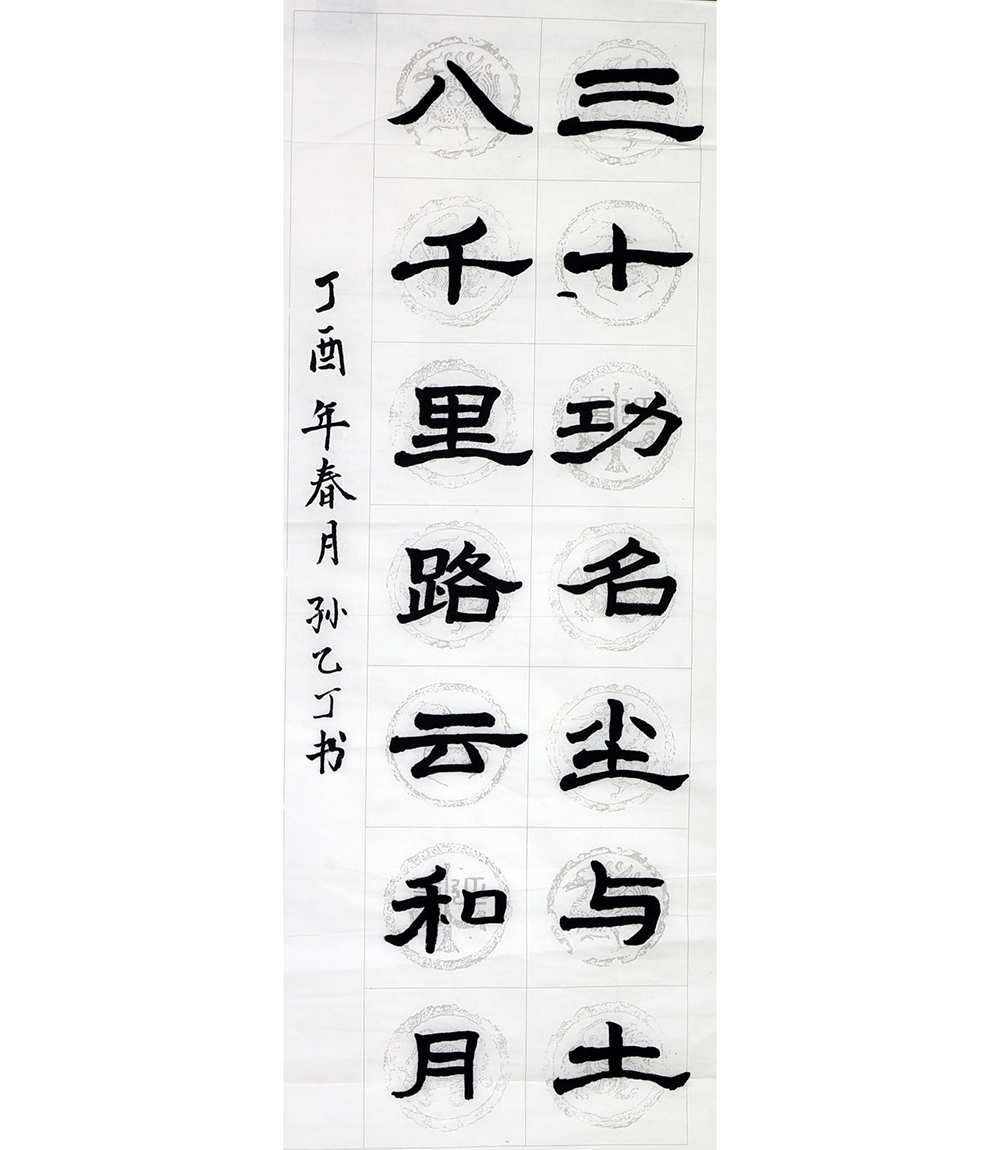 三十功名尘与土
八千里路云和月
丁酉年春月孙乙丁书